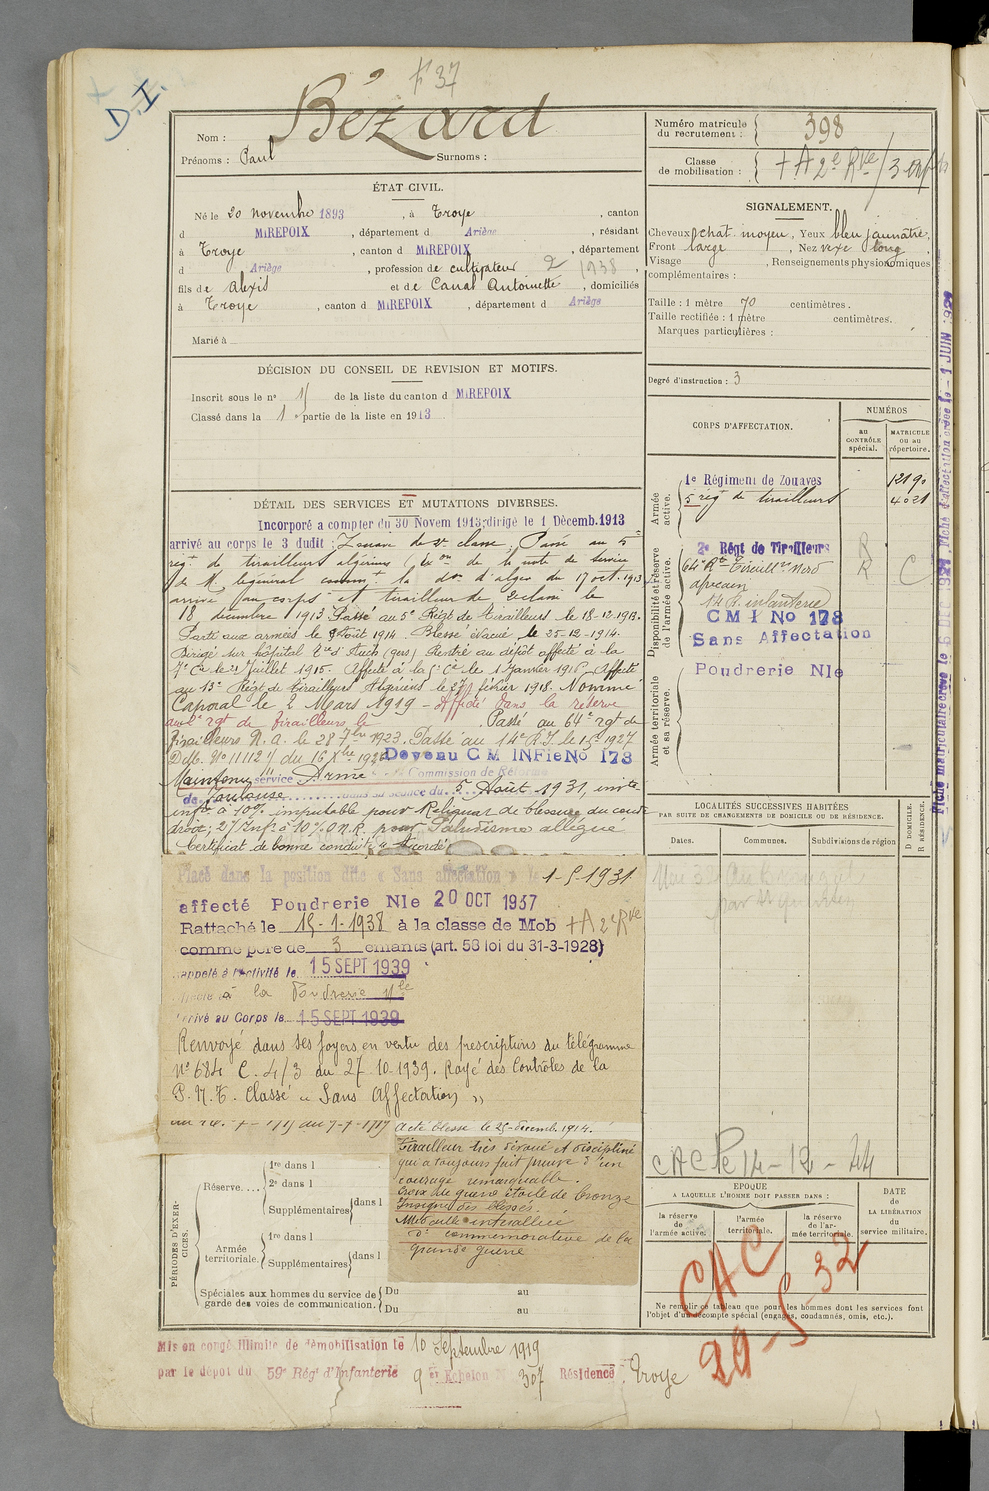 F° 37
D.I.
Bézard
Nom :
Prénoms : Paul Surnoms :
Numéro matricule du recrutement : 398
Classe de mobilisation : + A 2e Rve / 3 enfts
ÉTAT CIVIL.
Né le 20 novembre 1893, à Troye, canton
d MIREPOIX, département d Ariège, résidant
à Troye, canton d MIREPOIX, département
d Ariège, profession de cultivateur 2 1938
fils de Alexis et de Canal Antoinette, domiciliés
à Troye, canton d MIREPOIX, département d Ariège
Marié à
SIGNALEMENT.
Cheveux chat. moyen, Yeux bleu jaunâtre,
Front large, Nez vexe long,
Visage , Renseignements physionomiques
complémentaires :
Taille : 1 mètre 70 centimètres.
Taille rectifiée : 1 mètre centimètres.
Marques particulières :
Degré d'instruction : 3
DÉCISION DU CONSEIL DE REVISION ET MOTIFS.
Inscrit sous le n° de la liste du canton d MIREPOIX
Classé dans la 1 e partie de la liste en 1913
CORPS D'AFFECTATION.
NUMÉROS
au CONTRÔLE spécial.
MATRICULE ou au répertoire.
Armée active.
1e Régiment de Zouaves 12190
5 régt de tirailleurs 4021
Disponibilité et réserve de l'armée active.
2e Régt de Tirailleurs R
64e Rt Tirailleurs Nord R C
africain
14 R. infanterie
CM I No 178
Sans Affectation
Armée territoriale et sa réserve.
Poudrerie Nle
DÉTAIL DES SERVICES ET MUTATIONS DIVERSES.
Incorporé a compter du 30 Novem 1913; dirigé le 1 Décemb. 1913
arrivé au corps le 3 dudit ; Zouave de 2e classe. Passé au 5e
régt de tirailleurs algériens (Exon de la note de service
de M. le général commt la don d'alger du 17 oct. 1913
arrivé au corps et tirailleur de 2e classe le
18 décembre 1913 Passé au 5e Régt de tirailleurs le 18-12-1913.
Parti aux armées le 9 Août 1914. Blessé évacué le 25-12-1914.
Dirigé sur hôpital d'Auch (gers) Rentré au dépôt affecté à la
7e Cie le 21 Juillet 1915. Affecté à la Cie le 1 Janvier 1916. Affecté
au 13e Régt de tirailleurs Algériens le 27 février 1918. Nommé
Caporal le 2 Mars 1919 - Affecté dans la réserve
au 2e rgt de tirailleurs le . Passé au 64e rgt de
tirailleurs N. A. le 28 7bre 1923. Passé au 14e R.I. le 1927
Devenu C M INFie No 178
Maintenu service Armé Commission de Réforme
de Toulouse dans sa séance du 5 Août 1931, invte
infre à 10% imputable pour Reliquat de blessure du coude
droit; 2) Infre à 10% O.N.R. pour Paludisme allégué
Certificat de bonne conduite "Accordé"
Placé dans la position dite « Sans affectation » le 1-5-1931
affecté Poudrerie Nle 20 OCT 1937
Rattaché le 15-1-1938 à la classe de Mob + A 2e Rve
comme père de 3 enfants (art. 58 loi du 31-3-1928)
Rappelé à l'activité le 15 SEPT 1939
Affecté à la Poudrerie Nle
Arrivé au Corps le 15 SEPT 1939
Renvoyé dans ses foyers en vertu des prescriptions du télégramme
n° 684 C. 4/3 du 27-10-1939. Rayé des Contrôles de la
P.N.T. Classé « Sans Affectation »
été blessé le 25-décemb. 1914.
Tirailleur très dévoué et discipliné
qui a toujours fait preuve d'un
courage remarquable.
Croix de guerre étoile de bronze
Insigne des blessés.
Médaille interalliée
de commémorative de la
grande guerre
LOCALITÉS SUCCESSIVES HABITÉES
PAR SUITE DE CHANGEMENTS DE DOMICILE OU DE RÉSIDENCE.
Dates. Communes. Subdivisions de région
D DOMICILE.
R RÉSIDENCE.
CAC Pe 14-12-44
ÉPOQUE
A LAQUELLE L'HOMME DOIT PASSER DANS :
la réserve de l'armée active.
l'armée territoriale.
la réserve de l'armée territoriale.
DATE de LA LIBÉRATION du service militaire.
CAC
29-5-32
Ne remplir ce tableau que pour les hommes dont les services font
l'objet d'un décompte spécial (engagés, condamnés, omis, etc.).
PÉRIODES D'EXERCICES.
Réserve....
1re dans l
2e dans l
Supplémentaires dans l
Armée territoriale.
1re dans l
Supplémentaires dans l
Spéciales aux hommes du service de garde des voies de communication.
Du au
Du au
Mis en congé illimité de démobilisation le 10 Septembre 1919
par le dépôt du 59e Régt d'Infanterie 9 er Echelon N° 307 Résidence : Troye